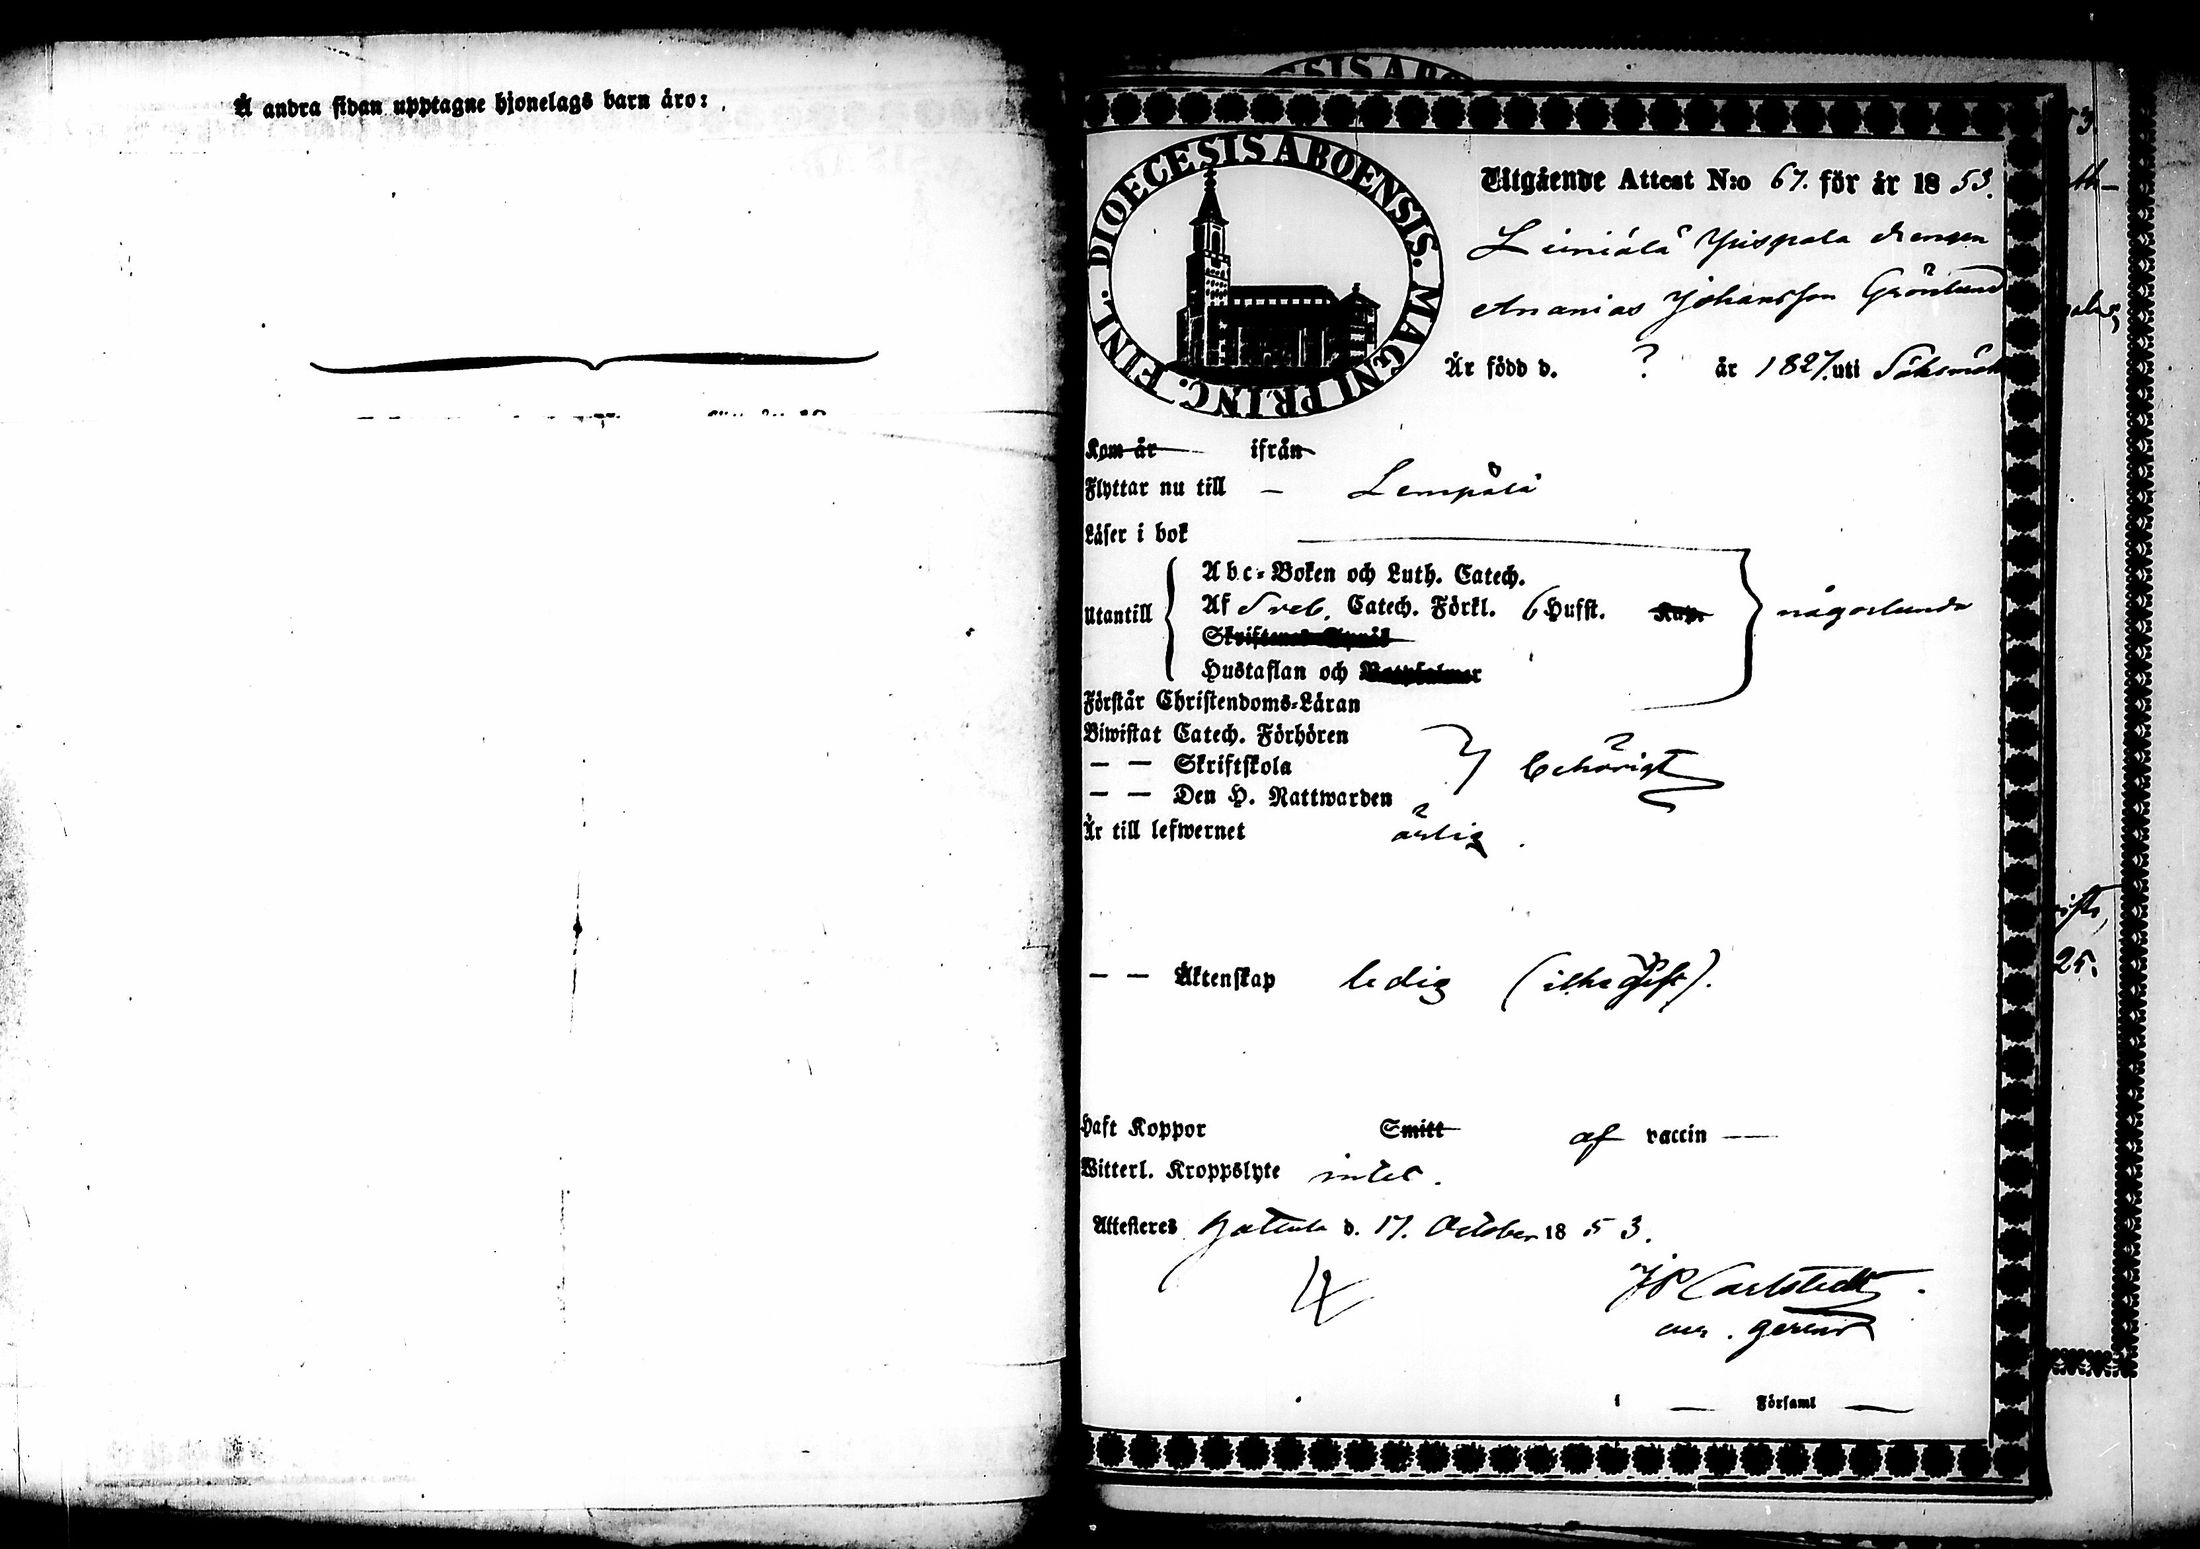 Å andra sidan upptagne hjonelags barn äro:
DIOECESIS ABOENSIS. MAGNI PRINC. FINL.
Utgående Attest N:o 67. för år 1853.
Ananias Johansson Grönlund
Är född d. ? år 1827. uti Sääksmäk
Kom år ifrån
Flyttar nu till – Lempälä
Läser i bok
Utantill
Abc-Boken och Luth. Catech.
Af Sveb. Catech. Förkl. 6 Hufst. Kap. någorlunda
Hustaflan och
Förstår Christendoms-Läran
Biwistat Catech. Förhören
— — Skriftskola behörigt
— — Den H. Nattwarden
Är till lefwernet ärlig.
— — Äktenskap ledig (icke gift).
Haft Koppor Smitt af vaccin —
Witterl. Kroppslyte intet.
Attesteres Hattula d. 17. October 1853.
JP Carlstedt.
i — Församl —
53
25.